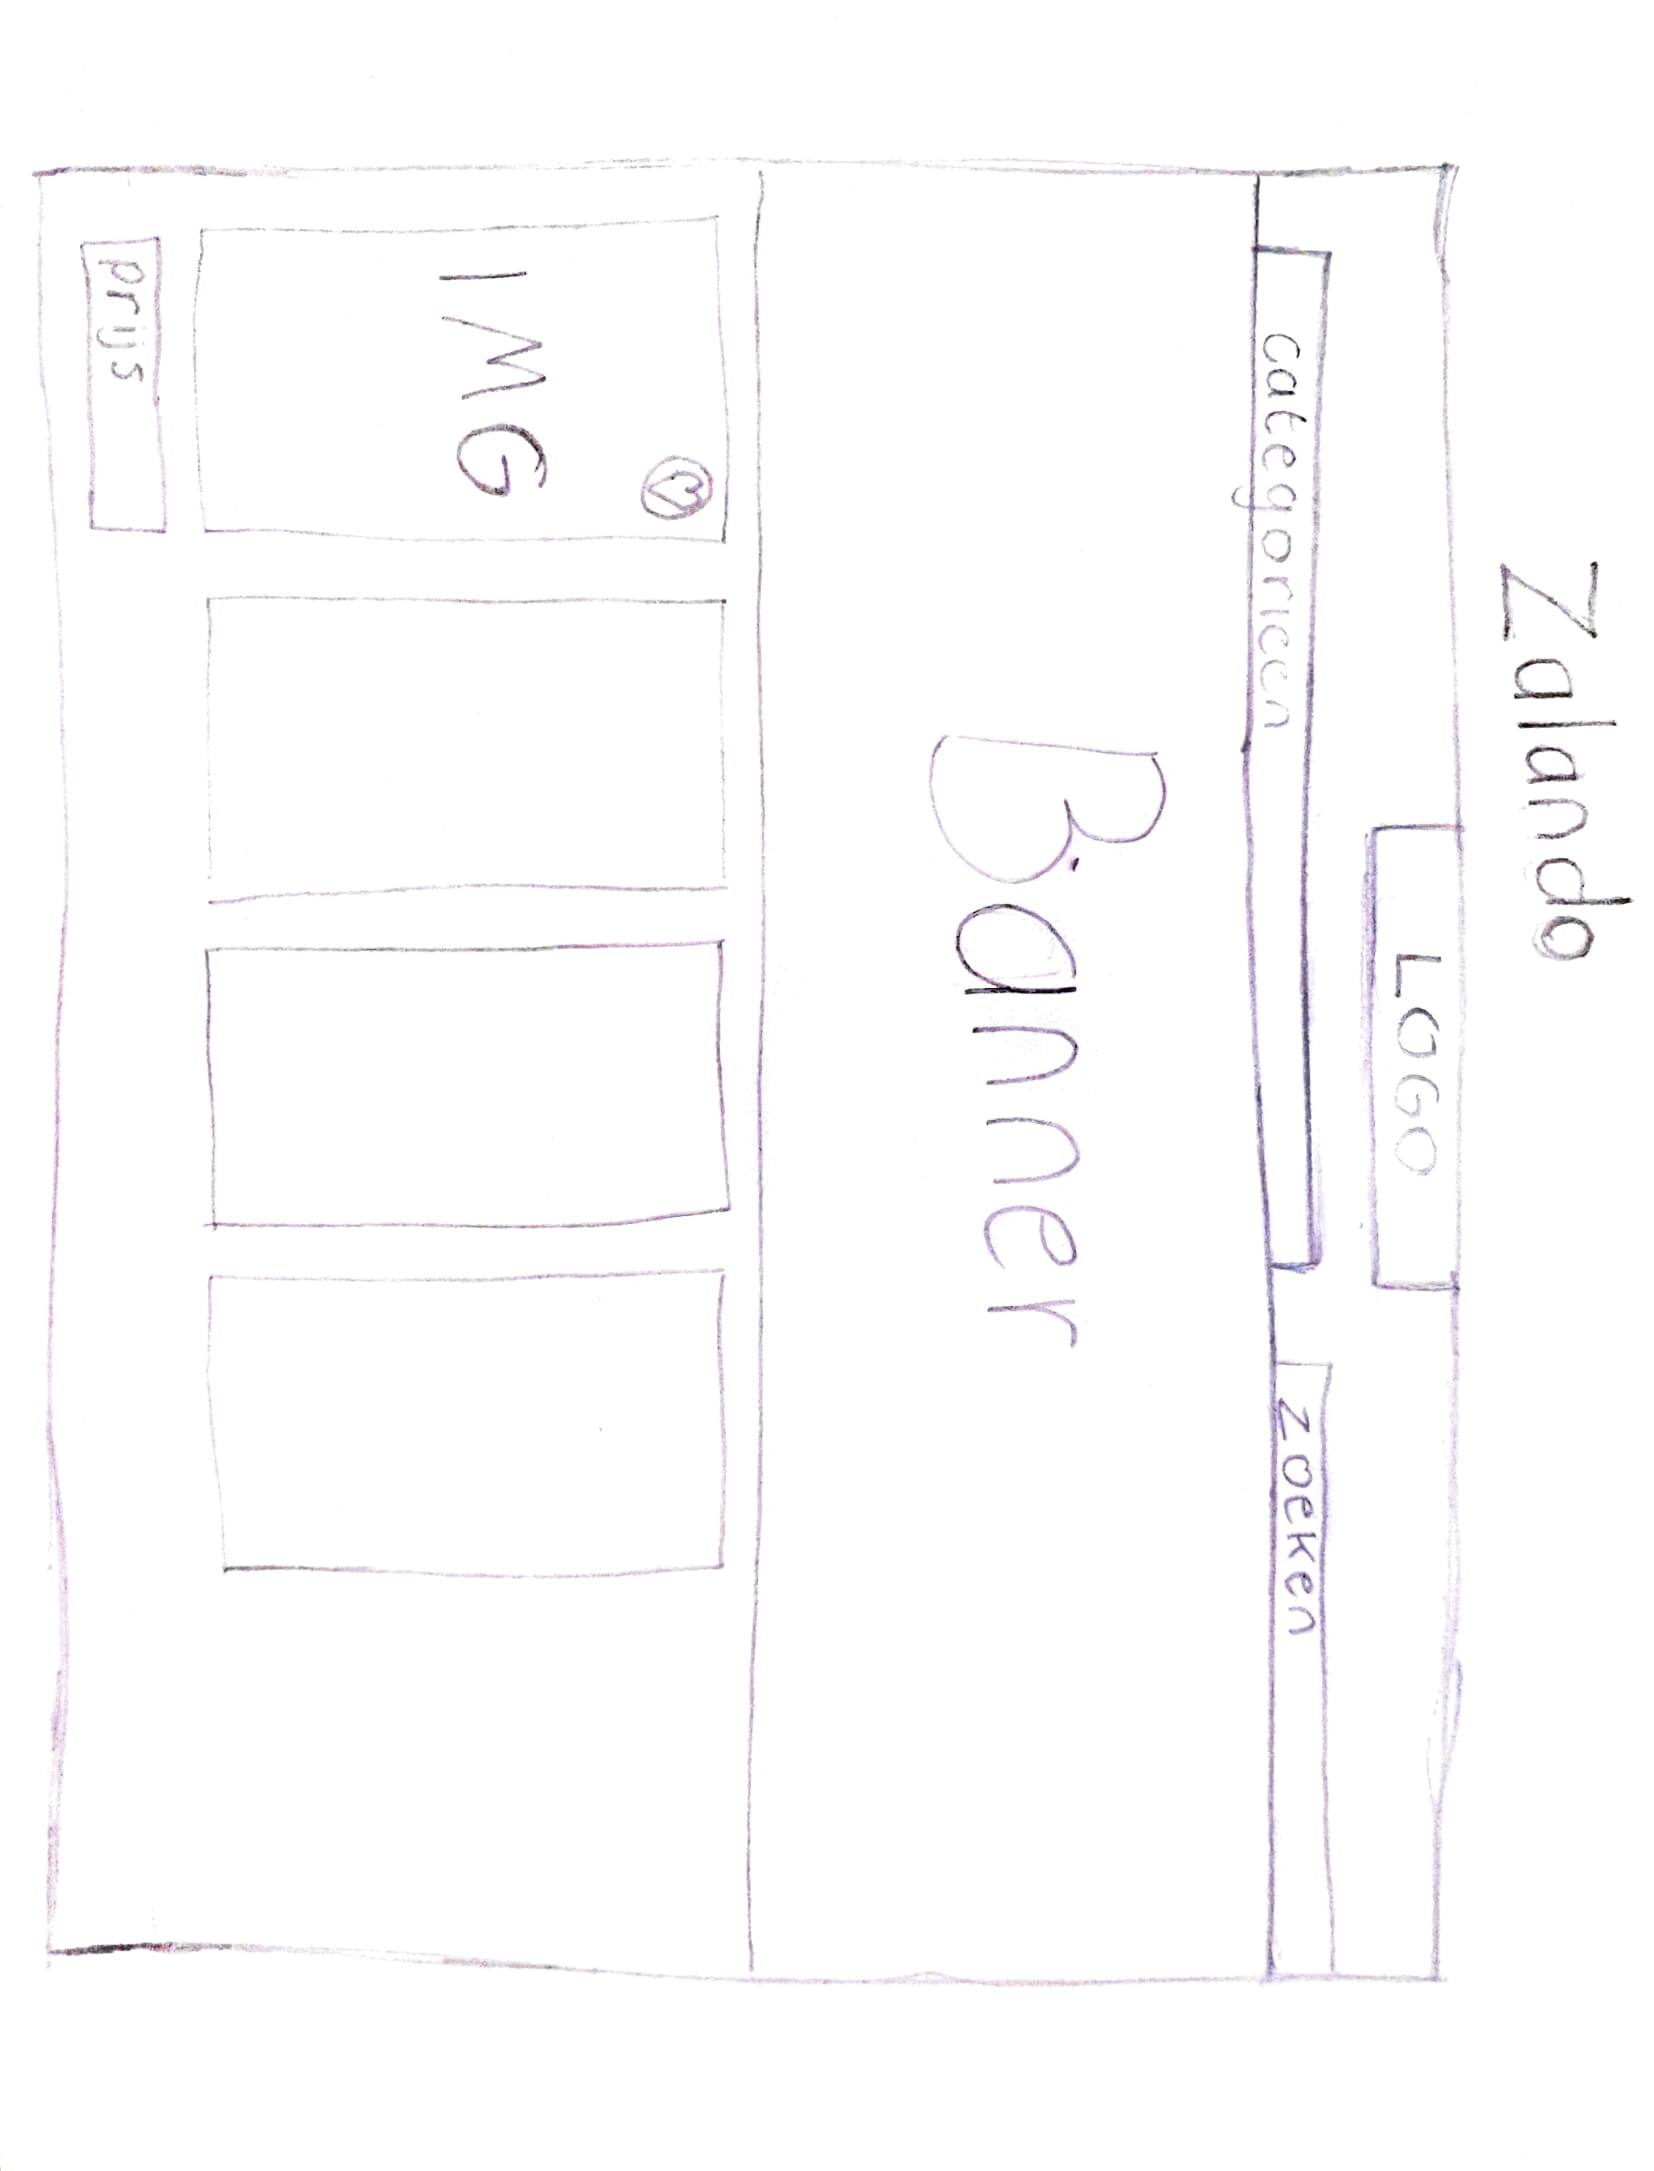 Zalando
LOGO
categorieen
zoeken
Banner
IMG
prijs